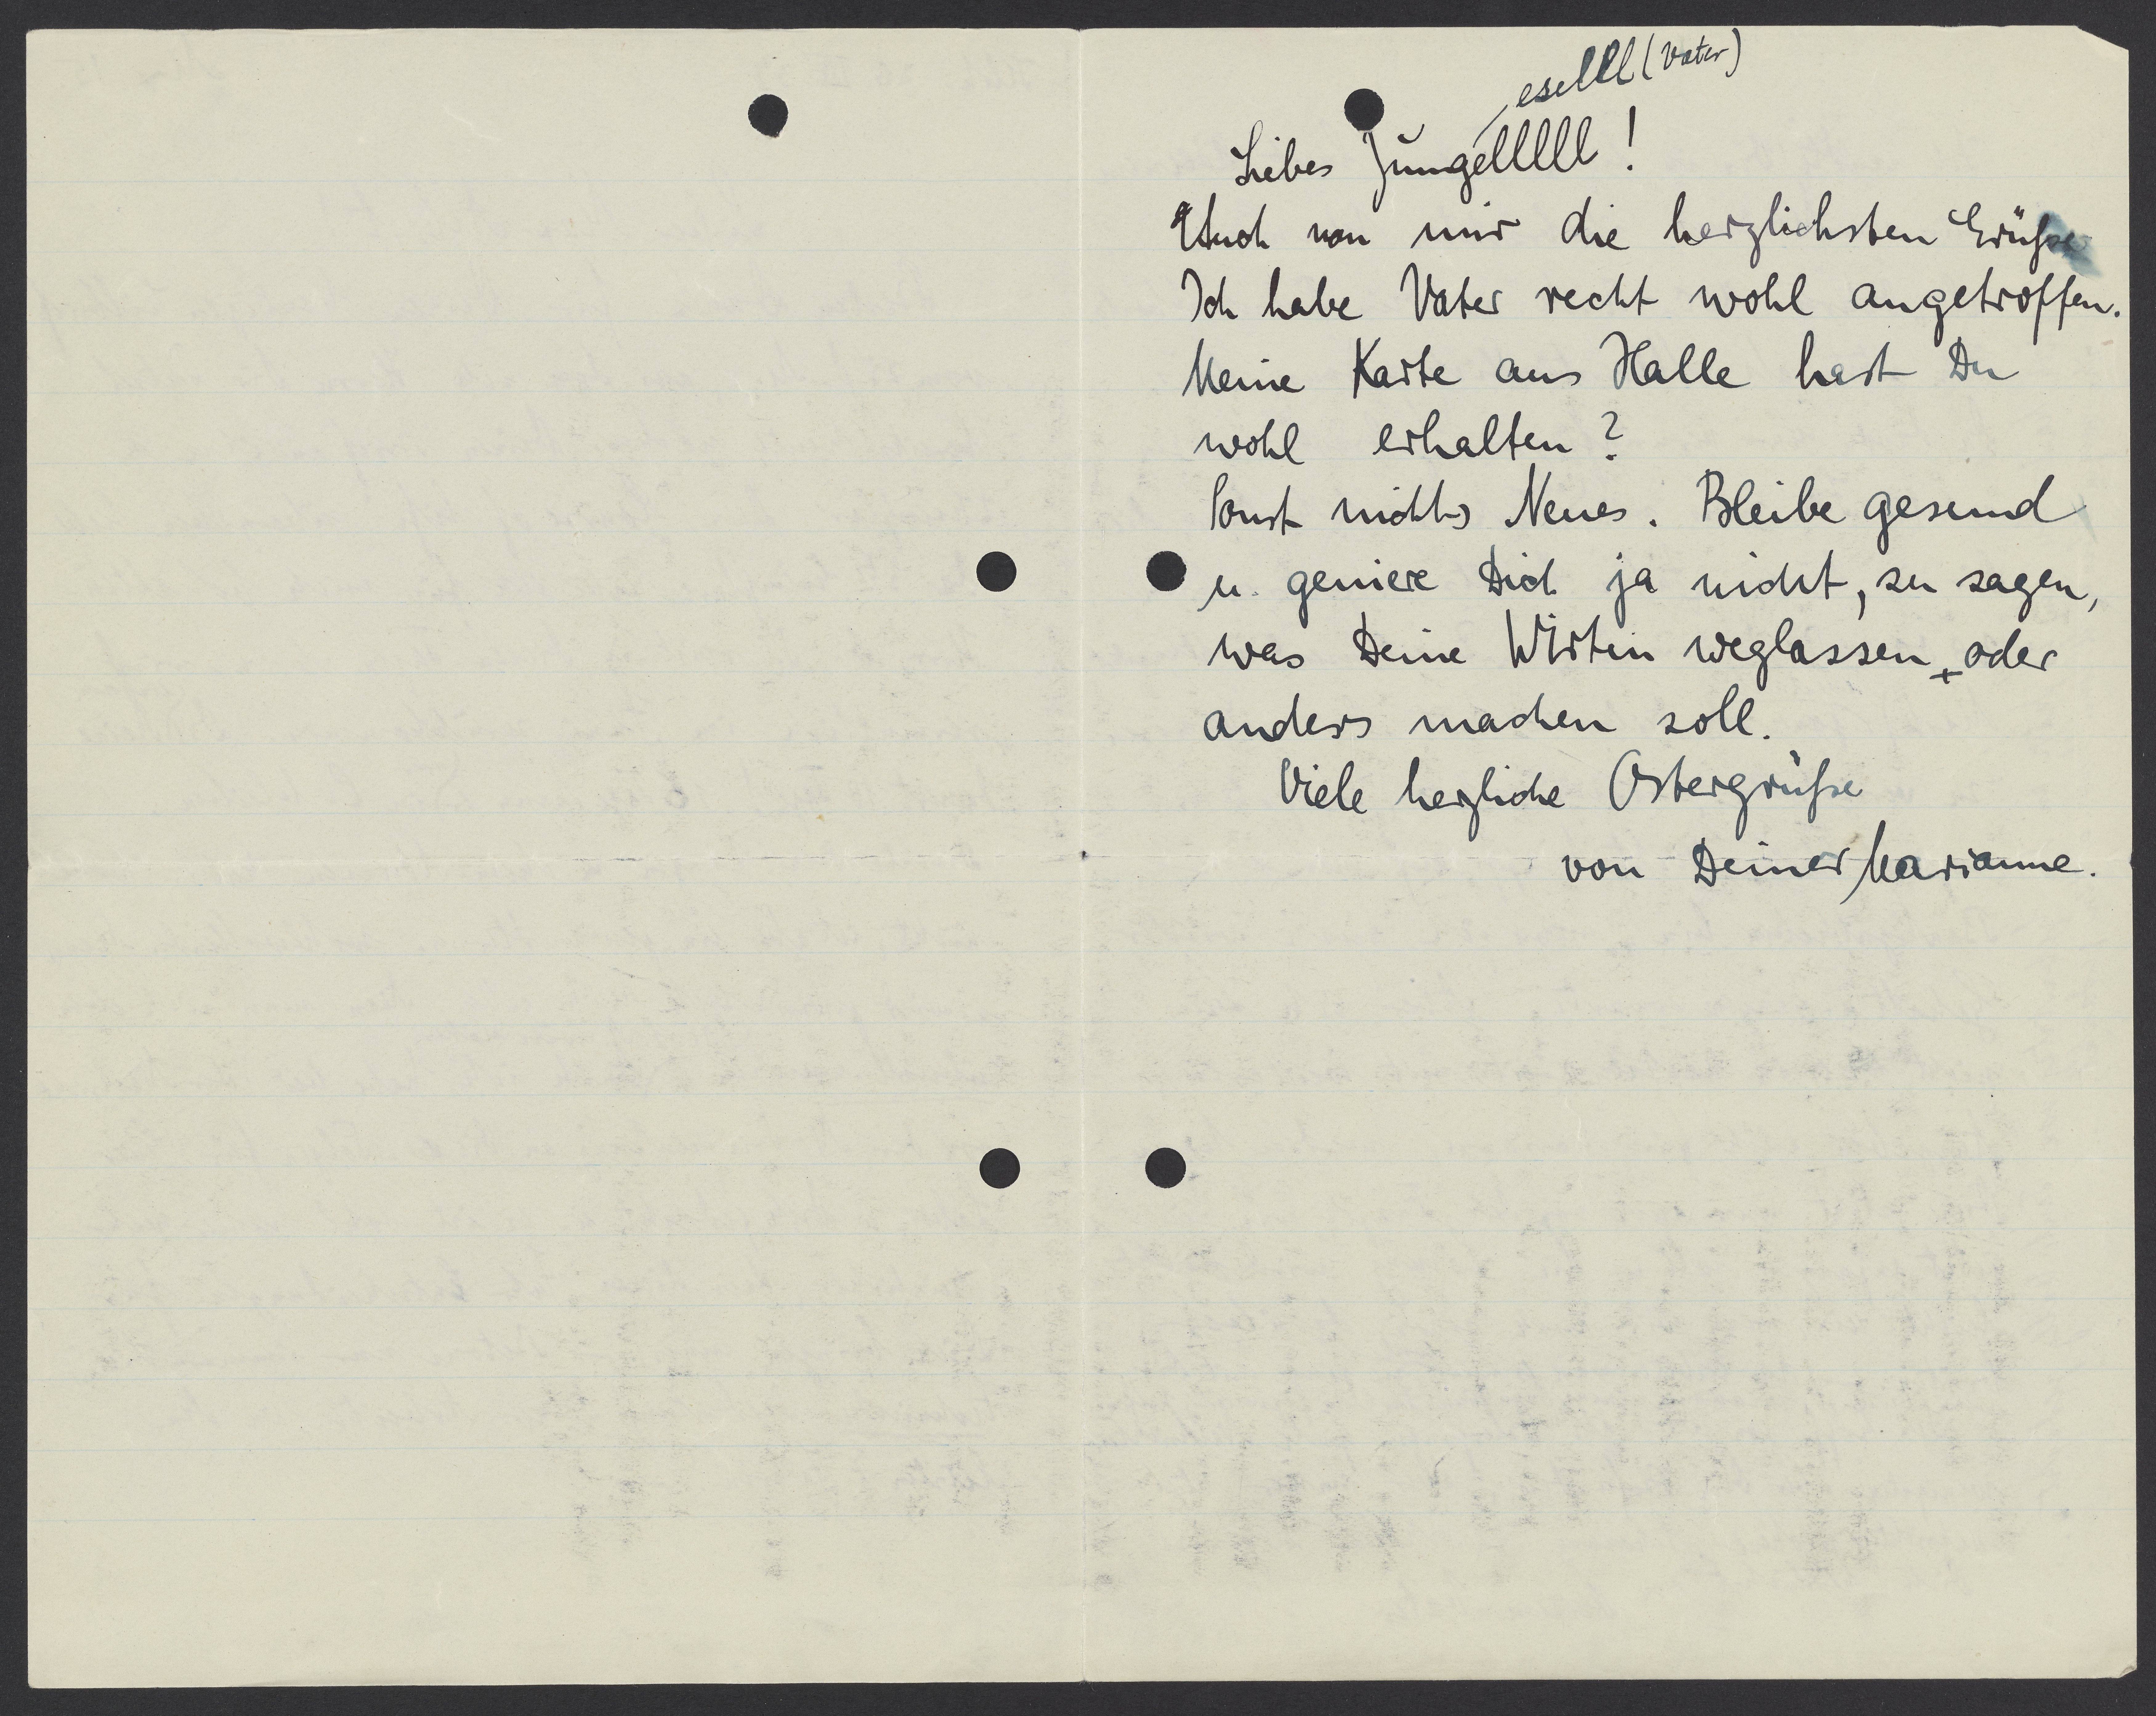 eselll (Vater)
Liebes Jungelllll!
Auch von mir die herzlichsten Grüße
Ich habe Vater recht wohl angetroffen.
Meine Karte aus Halle hast Du
wohl erhalten?
Sonst nichts Neues. Bleibe gesund
u. geniere Dich ja nicht, zu sagen,
was Deine Wirtin weglassen + oder
anders machen soll.
Viele herzliche Ostergrüße
von Deiner Marianne.